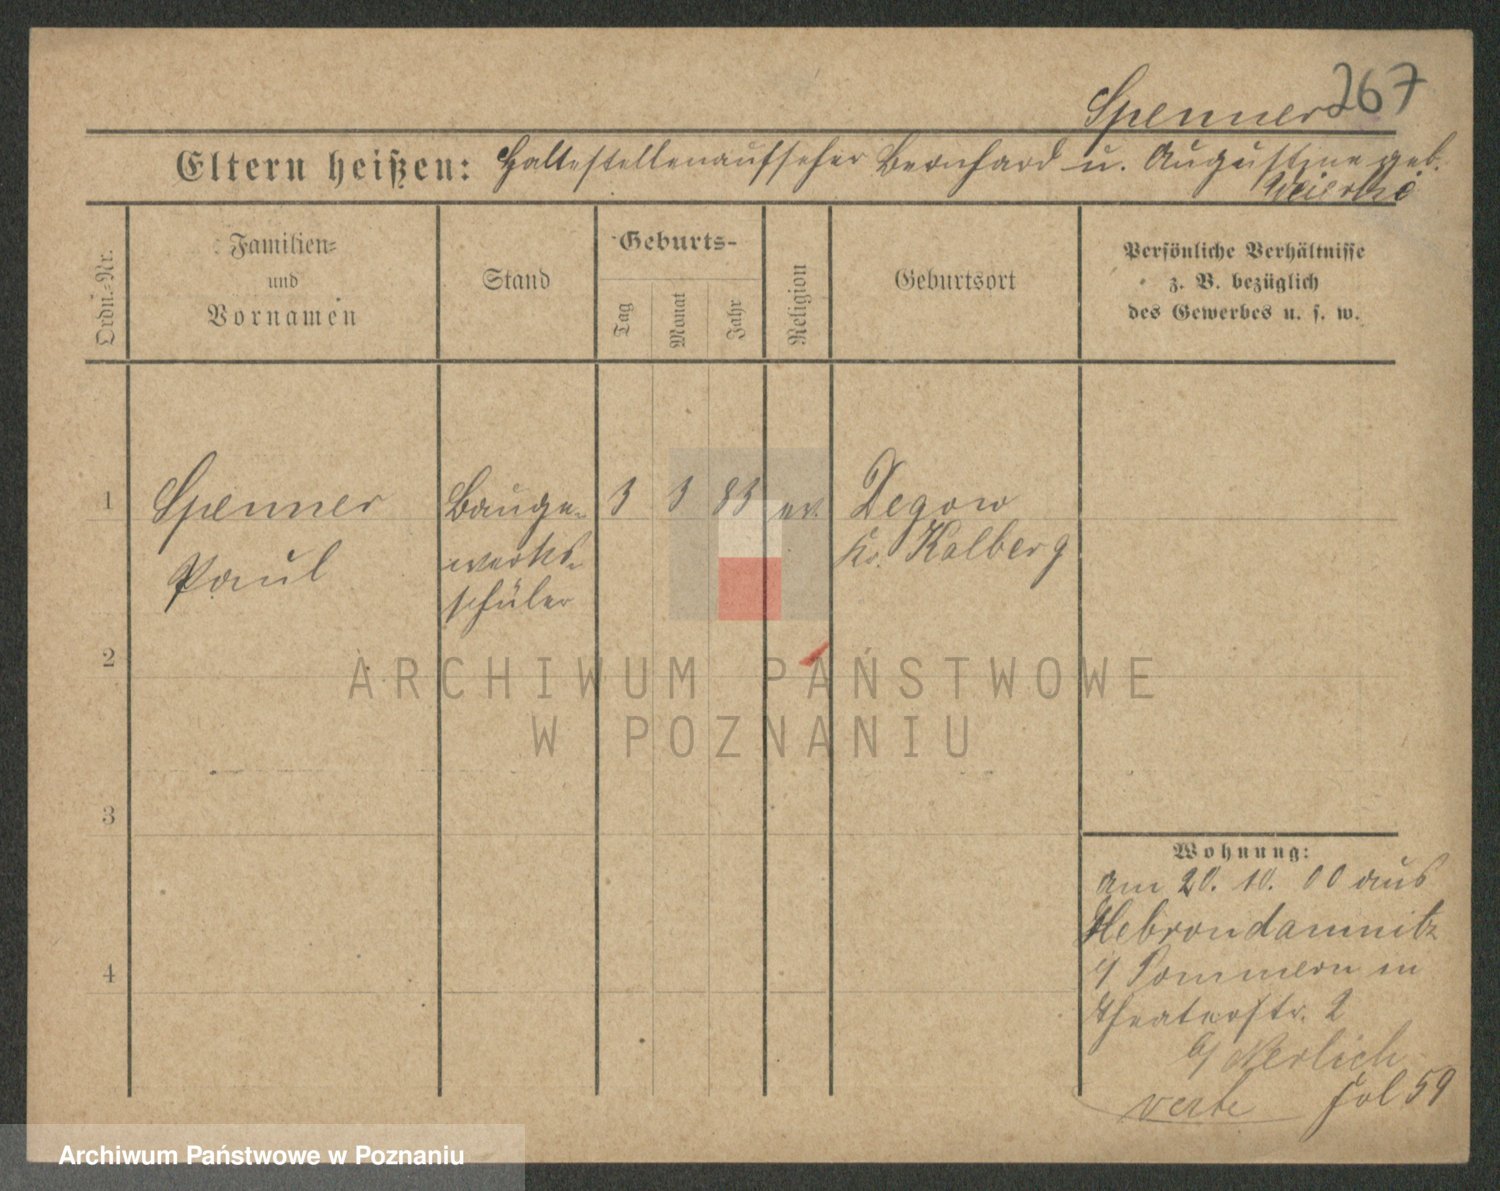 Spenner 267
Eltern heißen: Haltestellenaufseher Bernhard u. Augustine geb.
Ordn.-Nr.
Familien-
und
Vornamen
Stand
Geburts-
Tag
Monat
Jahr
Religion
Geburtsort
Persönliche Verhältnisse
z. B. bezüglich
des Gewerbes u. s. w.
1
Spenner
Paul
Bauge-
werks-
schüler
3 3 83 ev.
Degow
Kr. Kolberg
2
ARCHIWUM PAŃSTWOWE
W POZNANIU
3
4
Wohnung:
am 20. 10. 00 aus
Hebrondamnitz
i/ Pommern in
Theaterstr. 2
b/ Nerlich
verte Fol 59
Archiwum Państwowe w Poznaniu